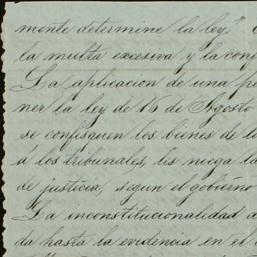 mente determine la ley,"
la multa excesiva y la con
La aplicacion de una p
ner la ley de 16 de Agosto
se confisquen los bienes de l
á los tribunales, les niega l
de justicia, segun el gobierno
La inconstitucionalidad
da hasta la evidencia en el